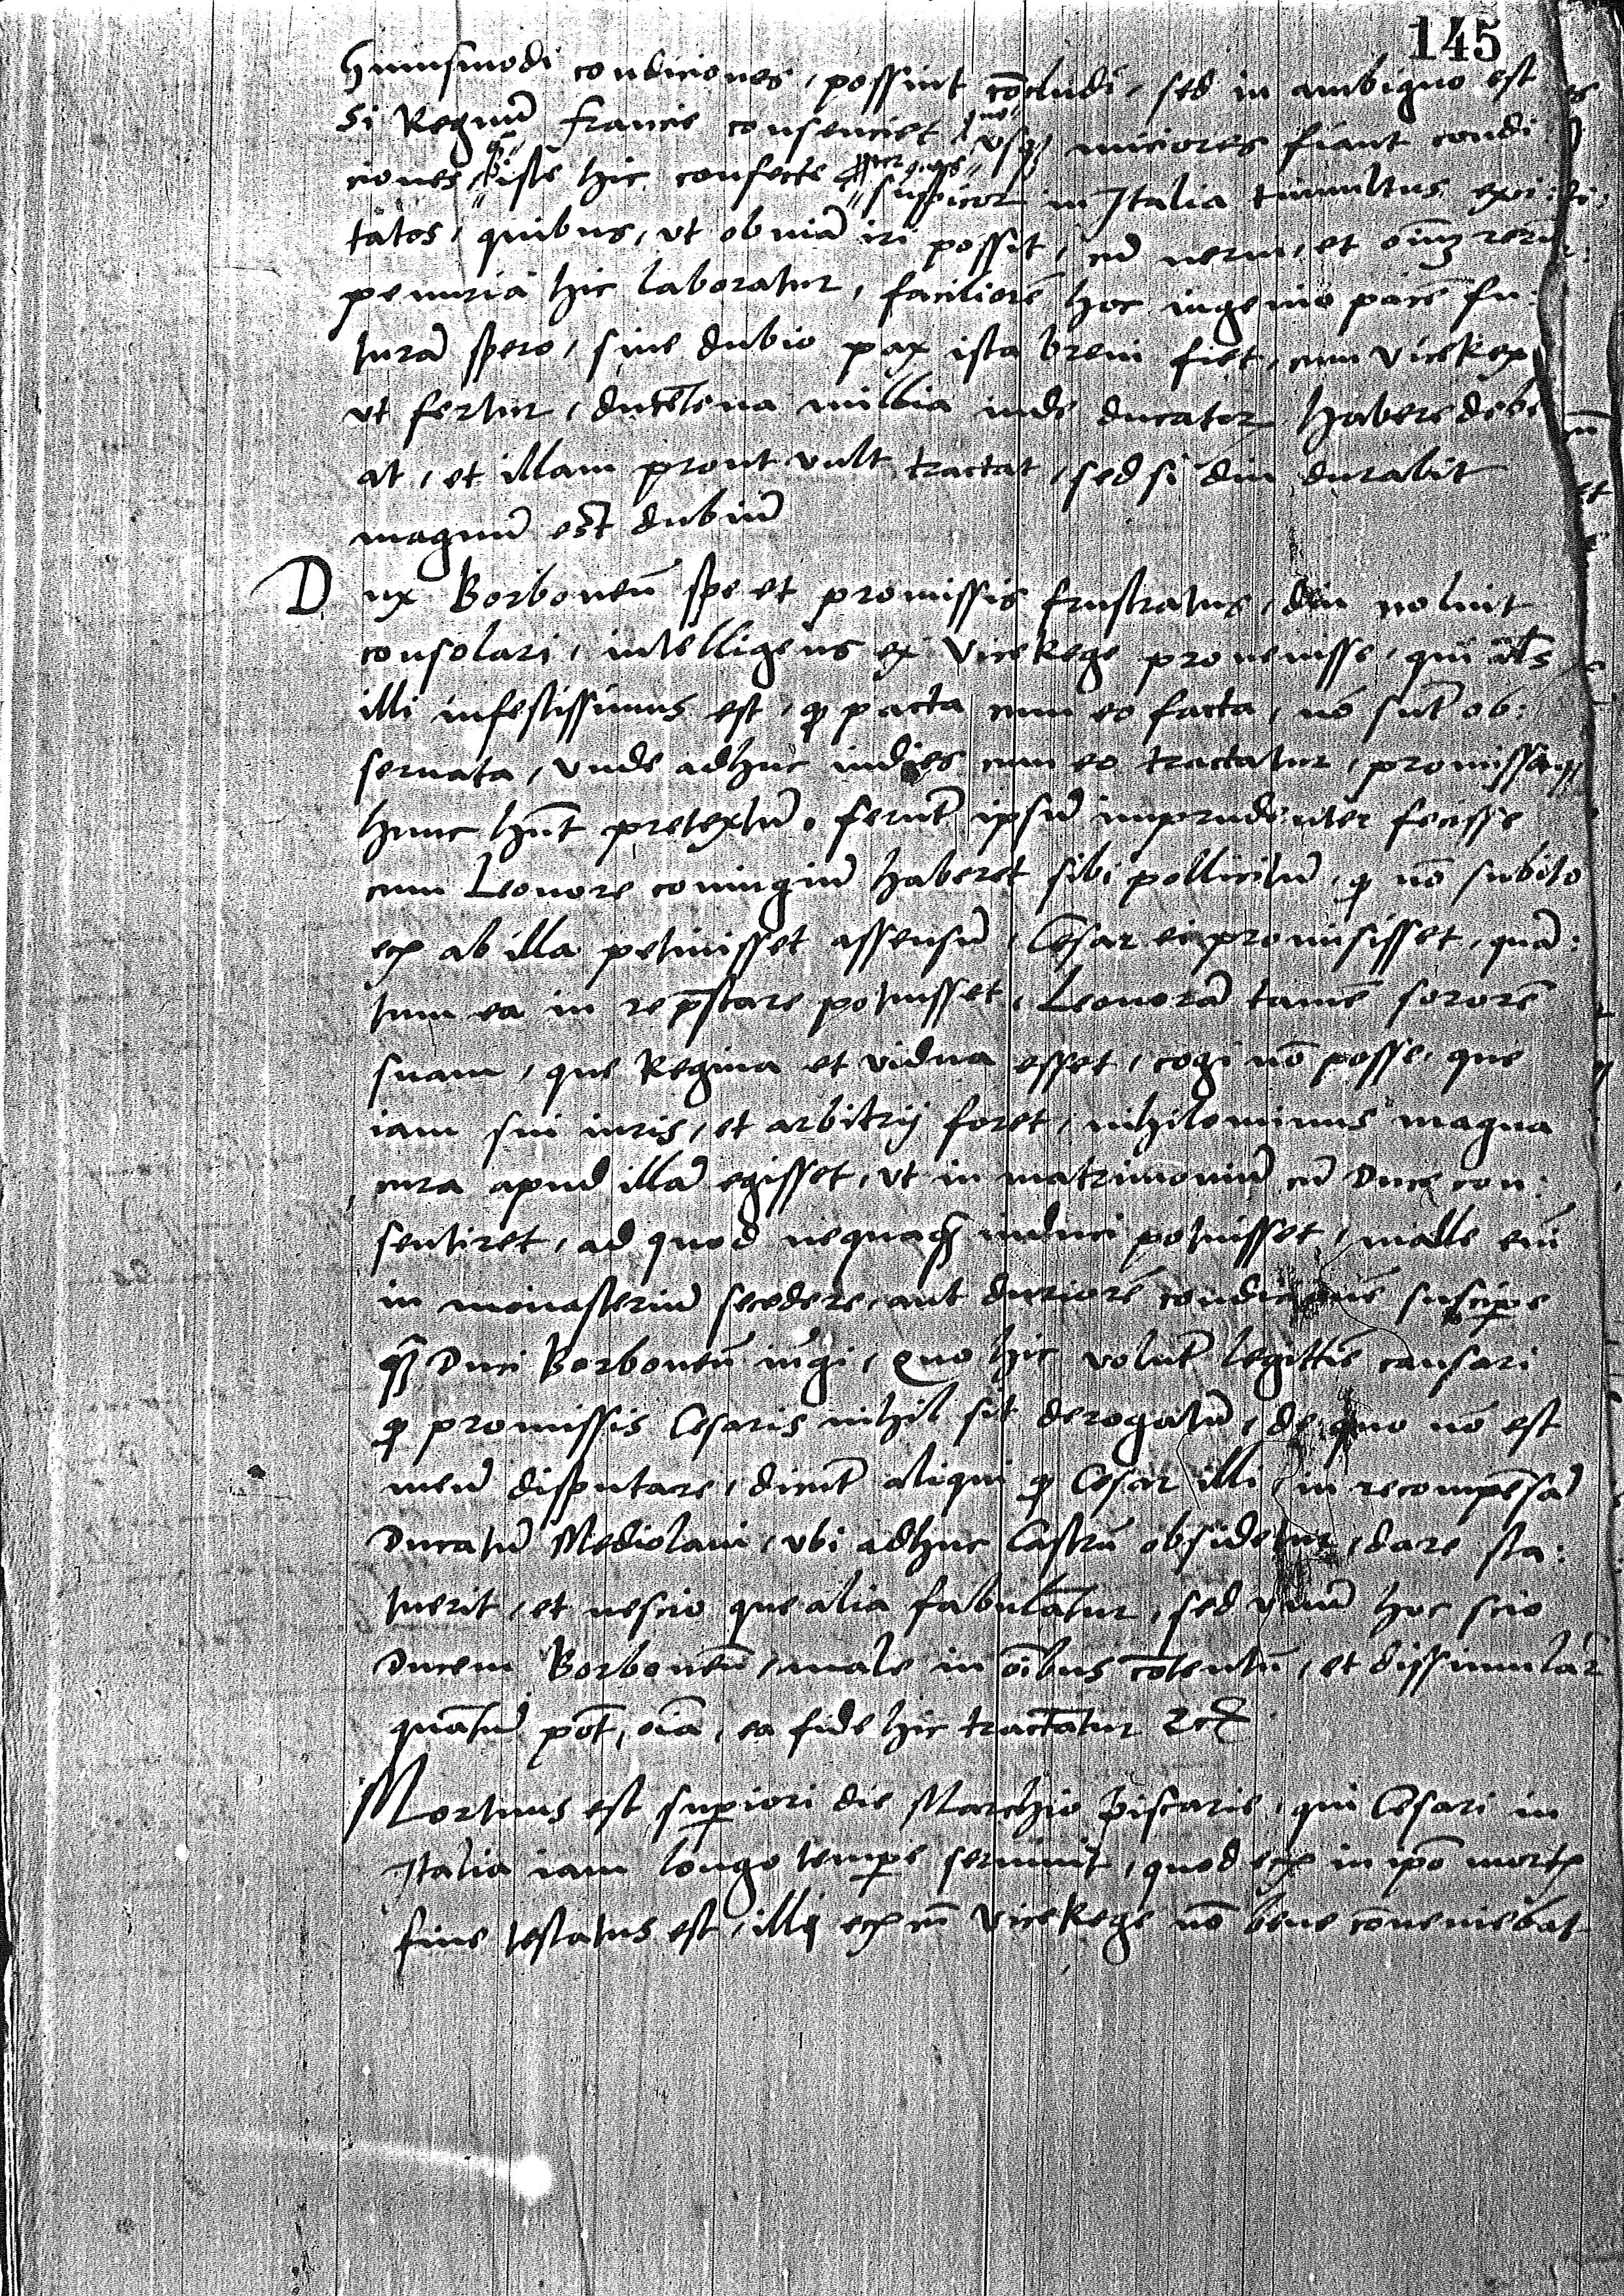 145
Huiusmodi condiciones, possint co͞cludi, sed in ambiguo est
Si Regnu͞ Francie consenciet, usq₃ miciores fiant condi
ciones iste hic confecte suspicor in Italia tumultus exci:
tatos, quibus, ut obuia͞ iri possit, cu͞ nerui, et o͞im reru͞
penuria hic laboratur, faciliore͞ hoc ingenio pace͞ fu:
tura͞ spero, sine dubio pax ista breui fiet, cum ViceRex
ut fertur, ducentena millia inde ducator habere debe
at, et illam prout vult tractat, sed si diu durabit
magnu͞ est dubiu͞
Dux Borboneu͞ spe et promissis frustratus, diu noluit
consolari, intelligens ex ViceRege prouenisse, qui
illi infestissimus est, q pacta cum eo facta, no͞ sunt ob:
seruata, Unde adhuc indies cum eo tractatur, promissaq₃
hunc hn͞t pretextu͞. ferunt ipsu͞ imprudenter fecisse
cum Leonore coniugiu͞ haberet sibi pollicitu͞, q no͞ subito
ab illa petiuisset assensu͞, Cesar ei promisisset, qua͞:
tum ea in re p͞stare potuisset, Leonora͞ tame͞ sorore͞
suam, que Regina et vidua esset, cogi no͞ posse, que
iam sui iuris, et arbitrij foret, nihilominus magna
cura apud illa͞ egisset, ut in matrimoniu͞ cu͞ Duce con:
sentiret, ad quod nequaq͞ induci potuisset, malle em͞
in monasteriu͞ secedere, aut duriore͞ condicione͞ suscipe
q͞ Duci Borboneu͞ iu͞gi, Quo hic volunt legittime causari
q promissis Cesaris nihil sit derogatu͞, de quo no͞ est
meu͞ disputare, dicunt aliqui q Cesar illi, in recompensa͞
Ducatu͞ Mediolani, ubi adhuc Castru͞ obsidetur, dare sta:
tuerit, et nescio que alia fabulantur, sed unu͞ hoc scio
Ducem Borboneu͞, male in o͞ibus co͞tentu͞, et dissimular
quantu͞ po͞t, o͞ia, ea fide hic tractantur
Mortuus est superiori die Marchio Piscarie, qui Cesari in
Italia iam longo tempe seruiuit, quod in ip͞o mortis
fine testatus est, illi cu͞ ViceRege no͞ bene co͞ueniebat